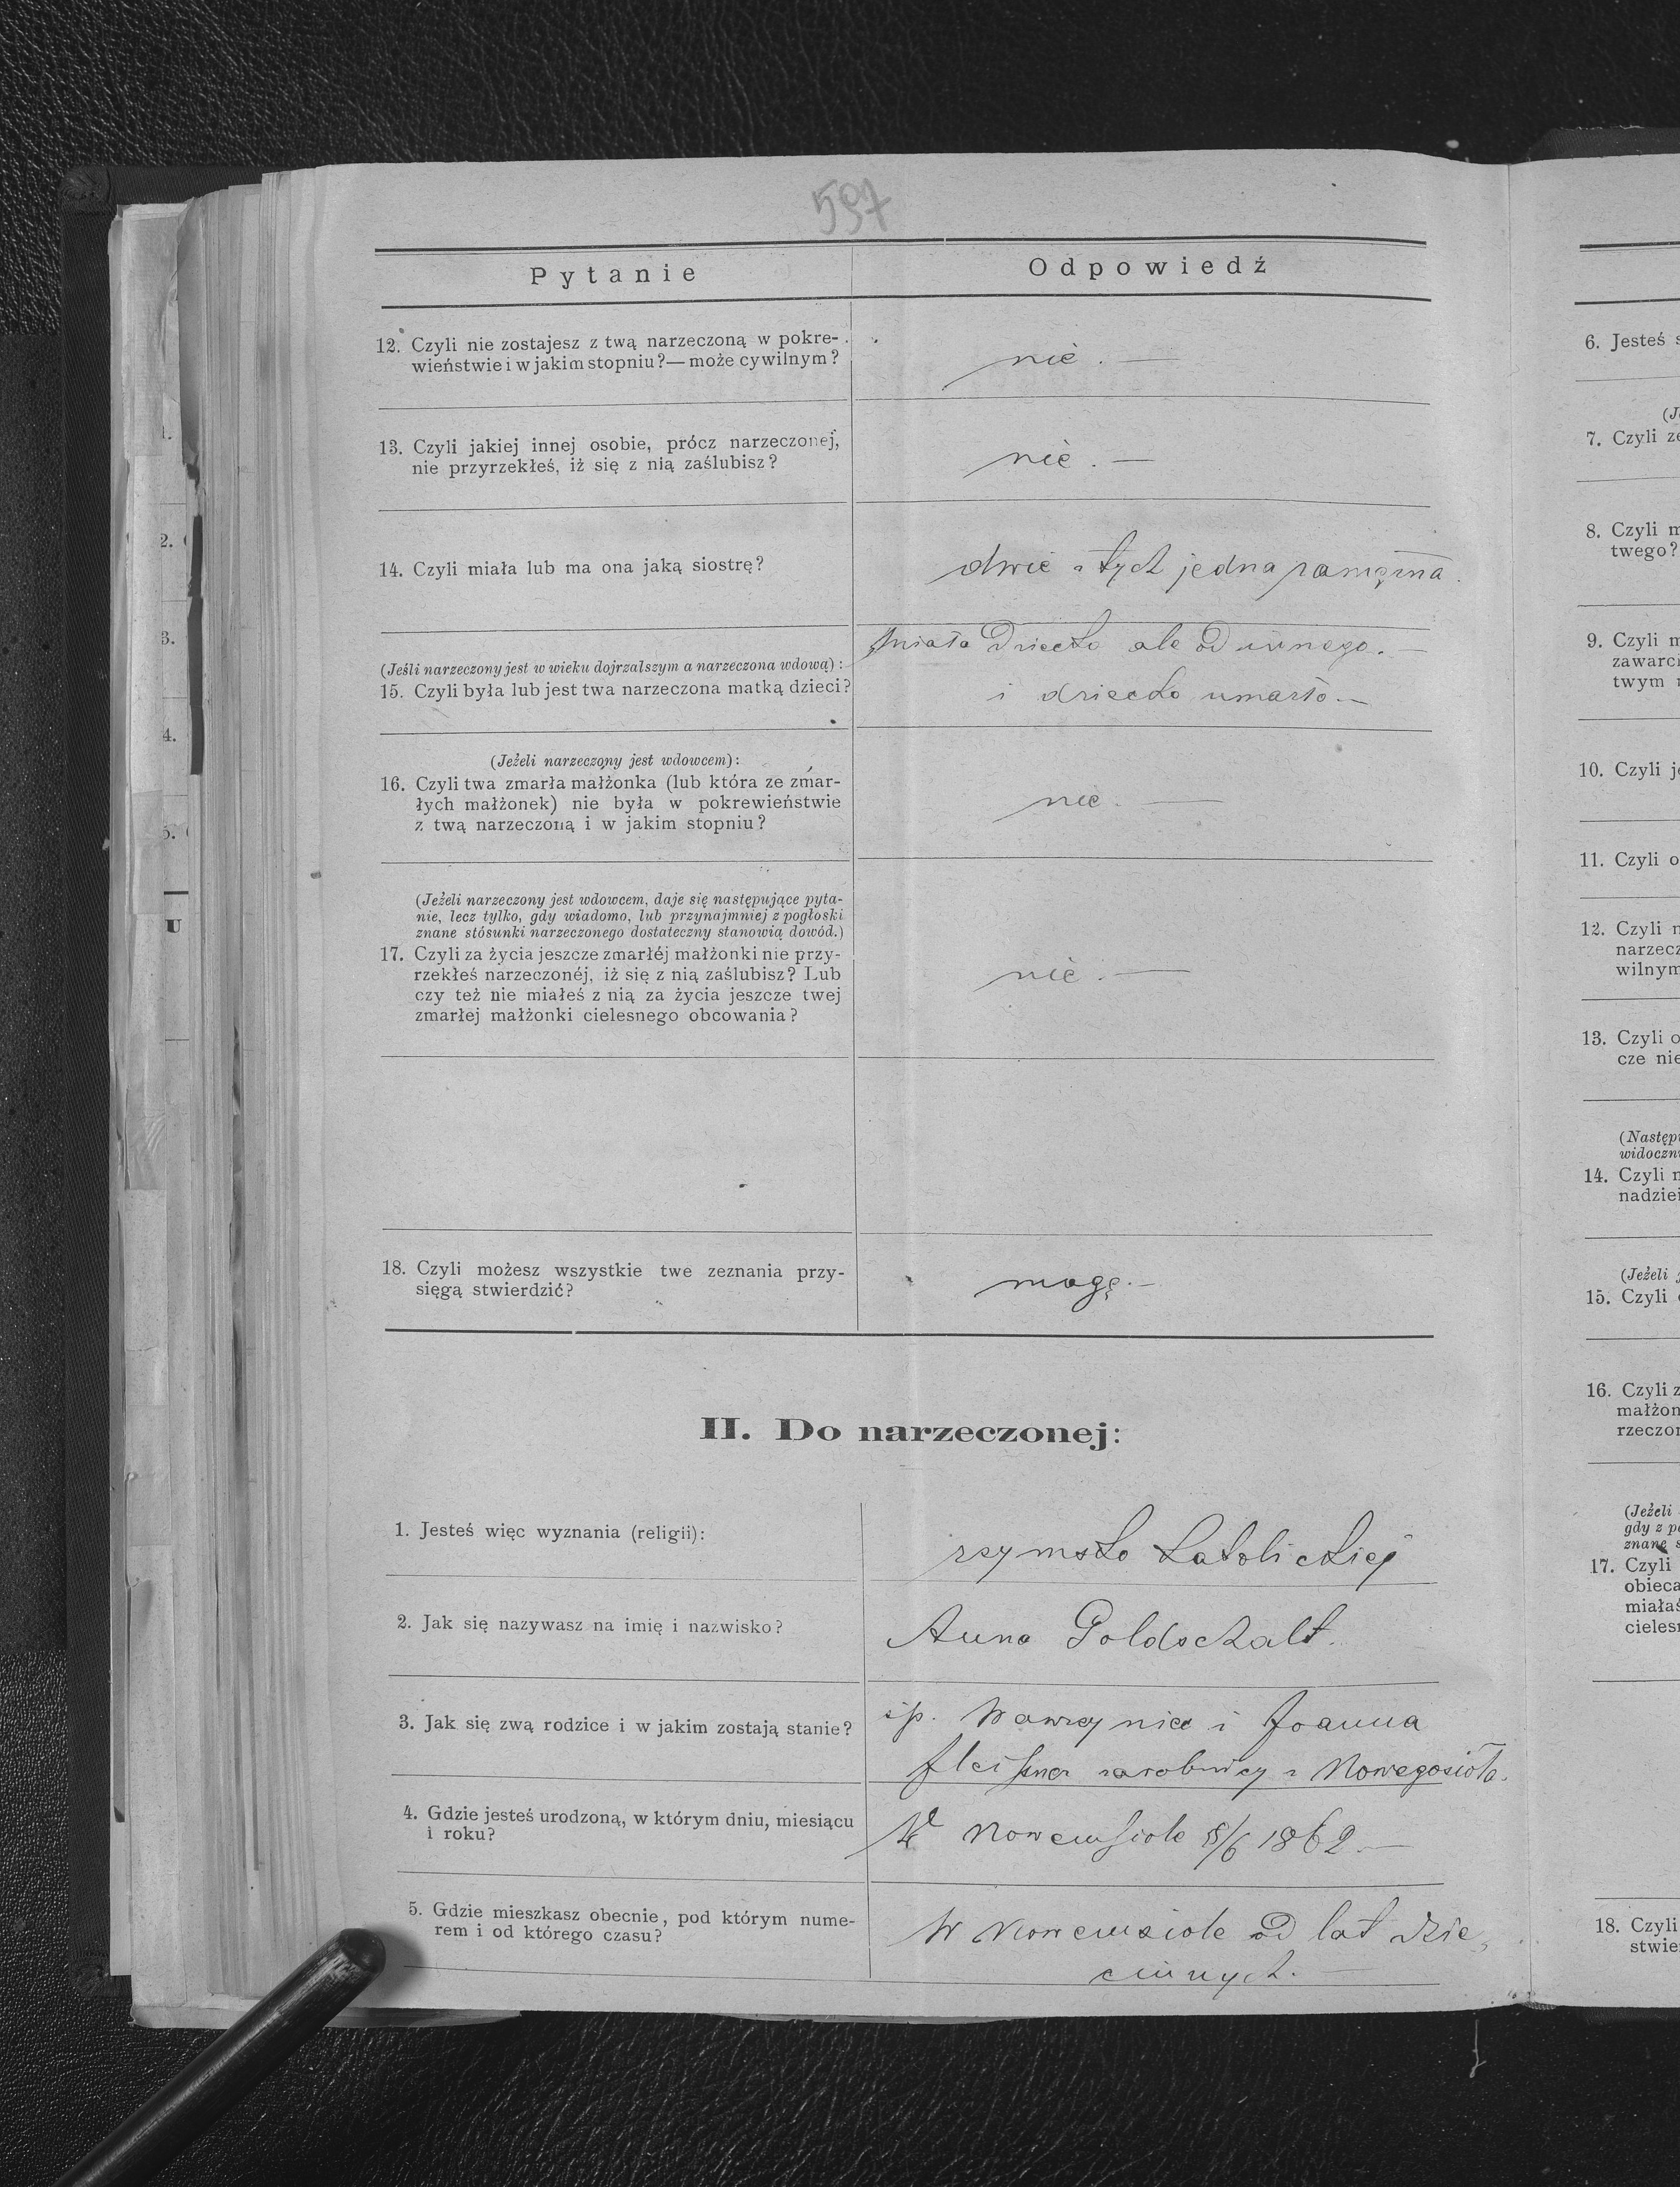 597
Pytanie
Odpowiedź
12. Czyli nie zostajesz z twą narzeczoną w pokre-
wieństwie i w jakim stopniu?— może cywilnym?
nie. —
13. Czyli jakiej innej osobie, prócz narzeczonej,
nie przyrzekłeś, iż się z nią zaślubisz?
nie. —
14. Czyli miała lub ma ona jaką siostrę?
dwie z tych jedna zamężna.
(Jeśli narzeczony jest w wieku dojrzalszym a narzeczona wdową):
15. Czyli była lub jest twa narzeczona matką dzieci?
miała dziecko ale od innego. —
i dziecko umarło. —
(Jeżeli narzeczony jest wdowcem):
16. Czyli twa zmarła małżonka (lub która ze zmar-
łych małżonek) nie była w pokrewieństwie
z twą narzeczoną i w jakim stopniu?
nie. —
(Jeżeli narzeczony jest wdowcem, daje się następujące pyta-
nie, lecz tylko, gdy wiadomo, lub przynajmniej z pogłoski
znane stósunki narzeczonego dostateczny stanowią dowód.)
17. Czyli za życia jeszcze zmarłéj małżonki nie przy-
rzekłeś narzeczonéj, iż się z nią zaślubisz? Lub
czy też nie miałeś z nią za życia jeszcze twej
zmarłej małżonki cielesnego obcowania?
nie. —
18. Czyli możesz wszystkie twe zeznania przy-
sięgą stwierdzić?
mogę. —
II. Do narzeczonej:
1. Jesteś więc wyznania (religii):
rzymsko katolickiej
2. Jak się nazywasz na imię i nazwisko?
Anna Goldschalt.
3. Jak się zwą rodzice i w jakim zostają stanie?
śp. Wawrzyniec i Joanna
Fleissner zarobnicy z Nowegosioła.
4. Gdzie jesteś urodzoną, w którym dniu, miesiącu
i roku?
W Nowemsiole 8/6 1862 —
5. Gdzie mieszkasz obecnie, pod którym nume-
rem i od którego czasu?
W Nowemsiole od lat dzie
cinnych. —
6. Jesteś
7. Czyli
8. Czyli
twego?
9. Czyli
zawarci
twym
10. Czyli
11. Czyli
12. Czyli
narzecz
wilnym
13. Czyli
cze nie
(Następ
widoczn
14. Czyli
nadziei
(Jeżeli
15. Czyli
16. Czyli
małżon
rzeczon
(Jeżeli
gdy z
znane
17. Czyli
obieca
miałaś
cieles
18. Czyli
stwie